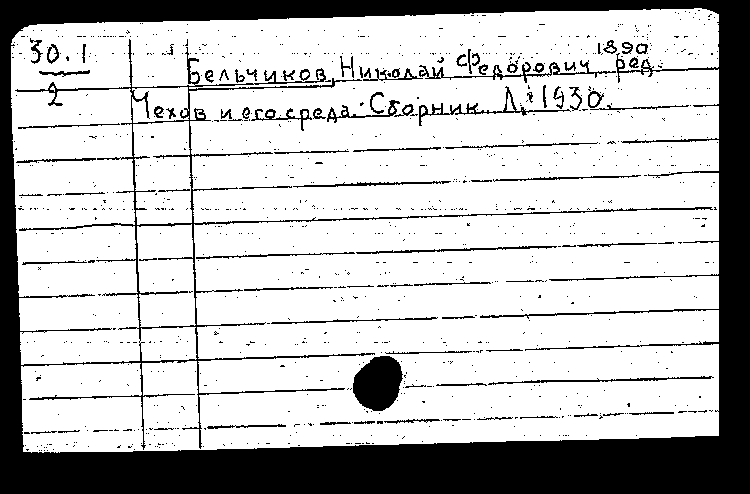 30.1
2
1890
Бельчиков, Николай Федорович, ред.
Чехов и его среда. Сборник. Л., 1930.